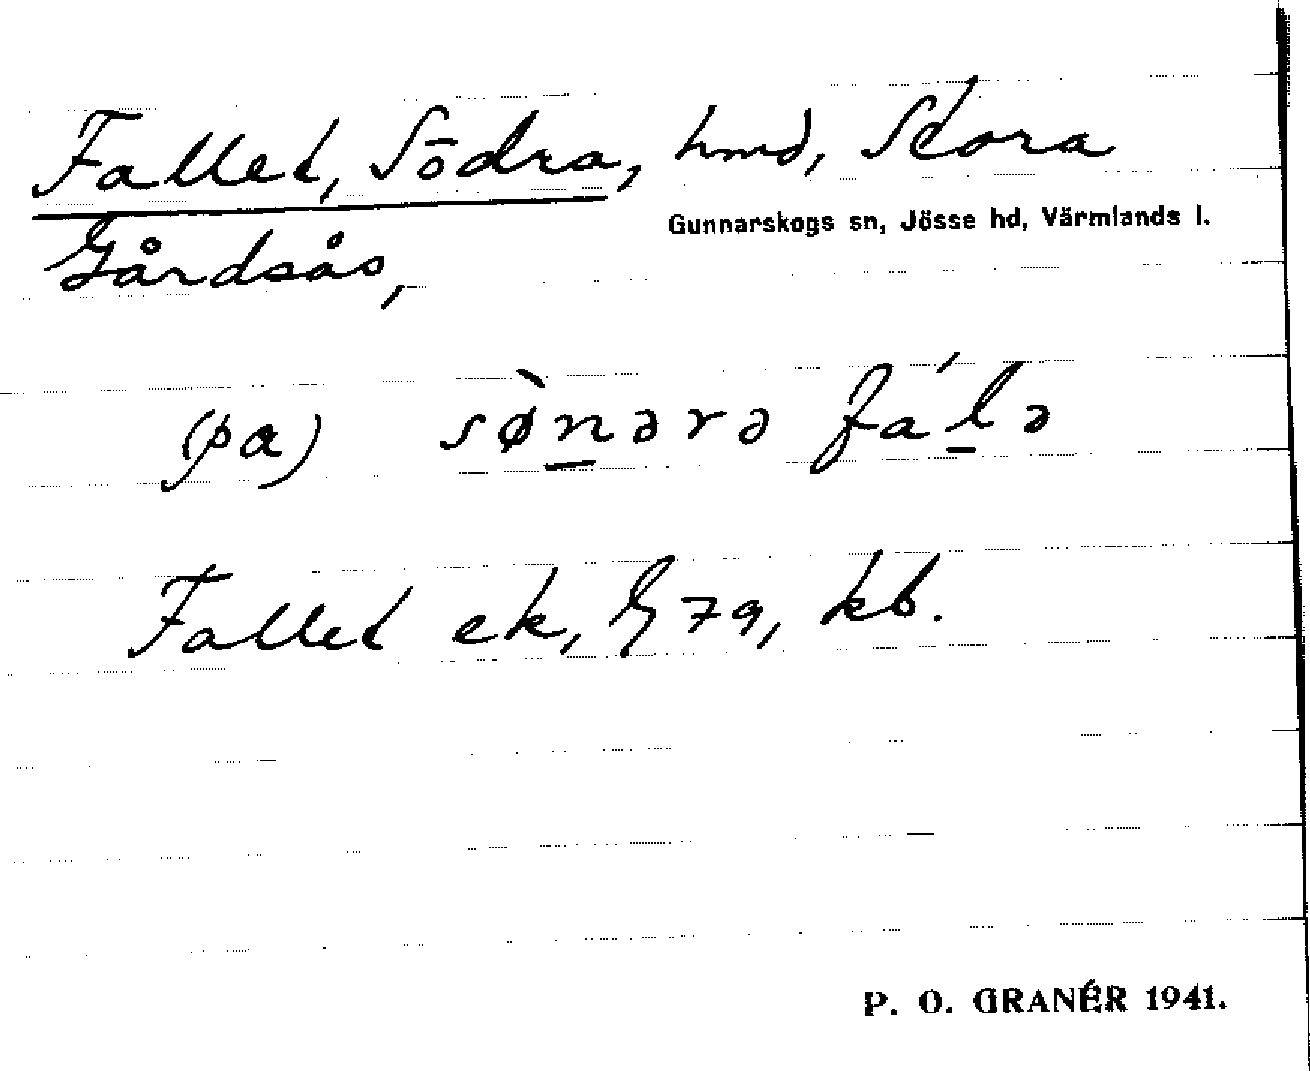 Fallet, Södra, hmd, Stora
Gunnarskogs sn, Jösse hd, Värmlands l.
Gårdsås,
(pa) sø̀n̲ərə fál̲ə
Fallet ek, G 79, kb.
P. O. GRANÉR 1941.